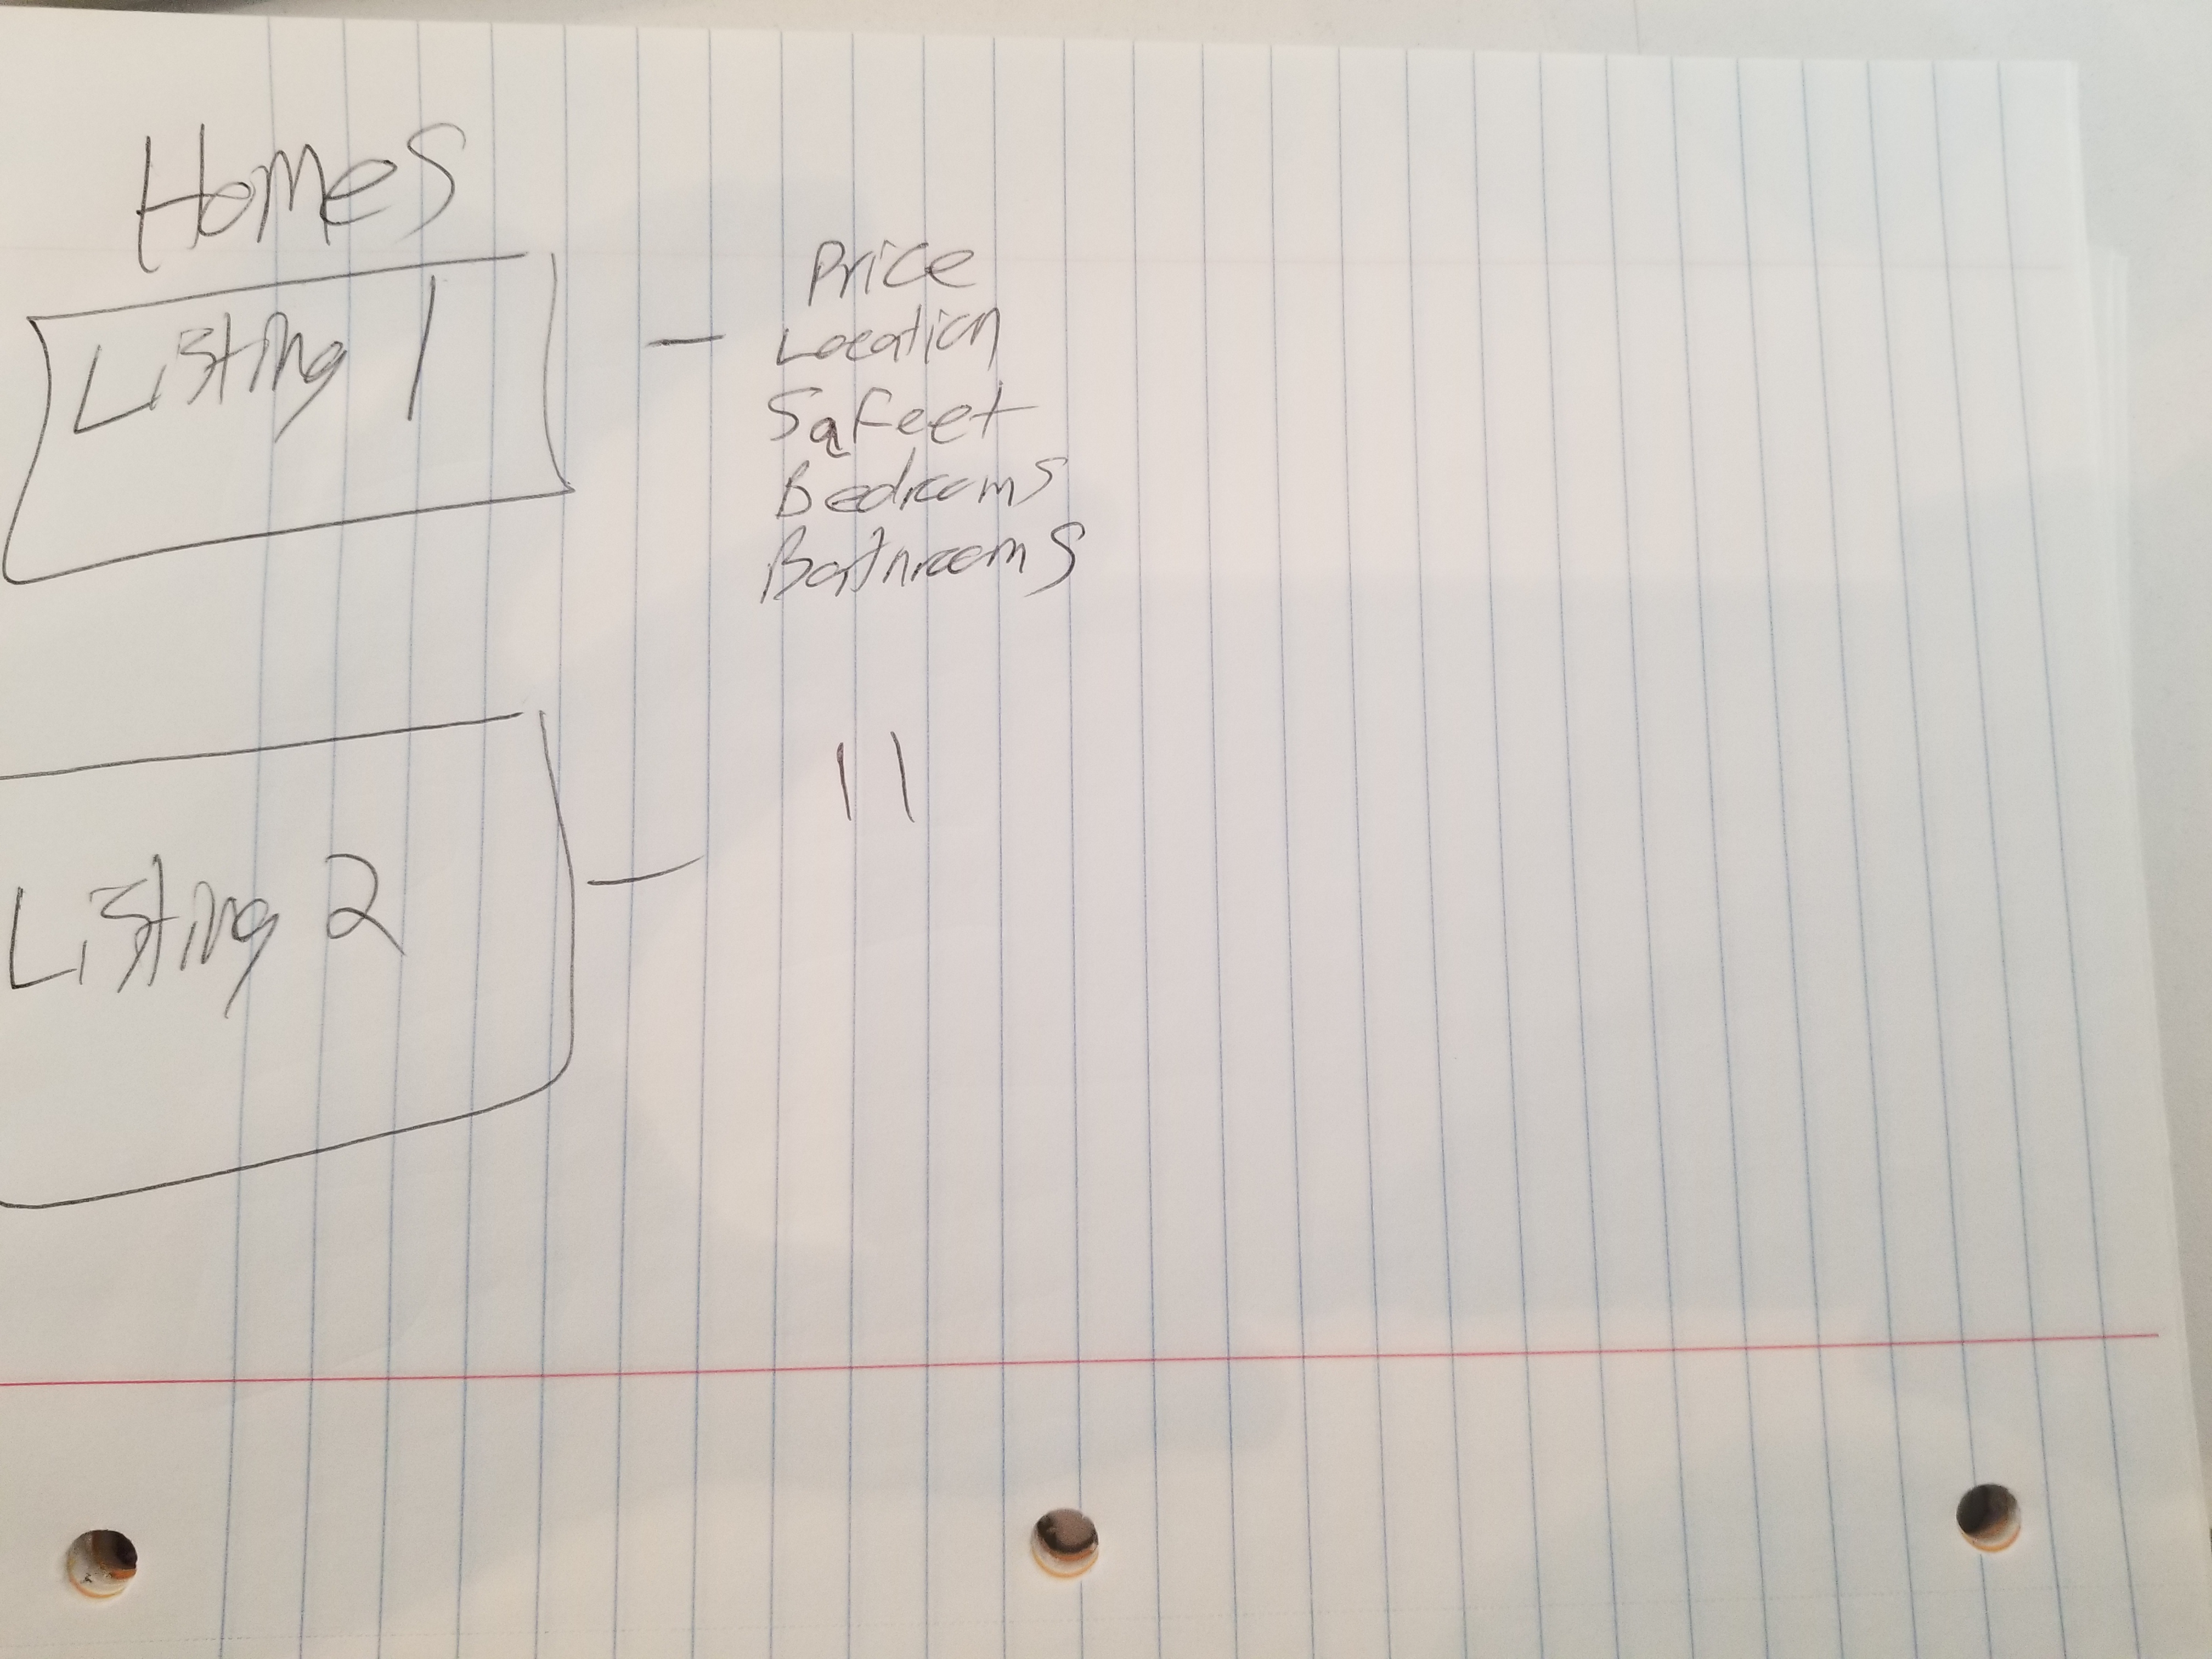 Homes
Listing 1
Price
Location
Sq Feet
Bedrooms
Bathrooms
Listing 2
11